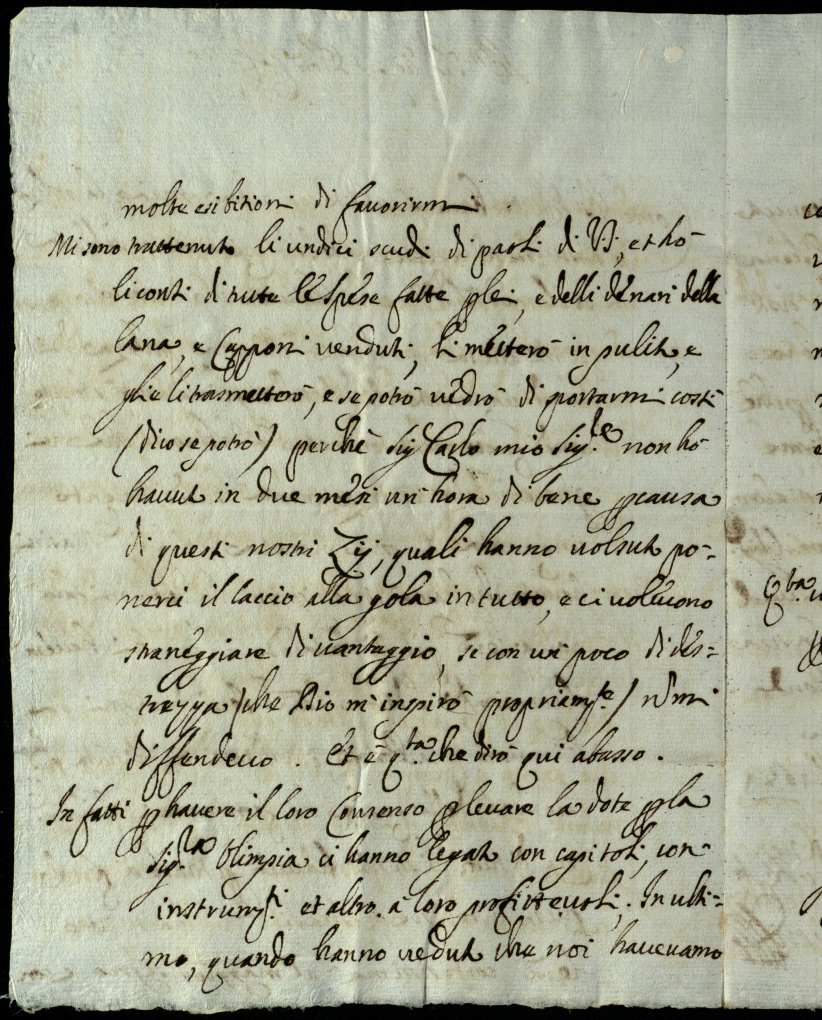 molte esibitioni di favorirmi.
Mi sono trattenuto li undici scudi di paoli di VS, et hò
li conti di tutte lé spése fatte plei, e delli dénari della
lana, e Capponi venduti, li métterò in pulito, e
glie li trasmetterò, e se potrò védrò di portarmi costì
(dico se potrò) perchè Sig. Carlo mio Sig.re non hò
havuto in due mési un hora di bene p causa
di questi nostri Zij, quali hanno volsuto po-
nerci il laccio alla gola in tutto, e ci volévono
straneggiare di vantaggio, se con un poco di dés=
trezza (che Dio m'inspirò propriam.te) nō mi
diffendevo. et è q.ta che dirò qui abasso.
In fatti p havere il loro Consenso p levare la dote p la
Sig.ra Olimpia ci hanno légati con capitoli, con
instrum.ti et altro. à loro profittevoli. In ulti=
mo, quando hanno veduto che noi havevamo
Q.ta